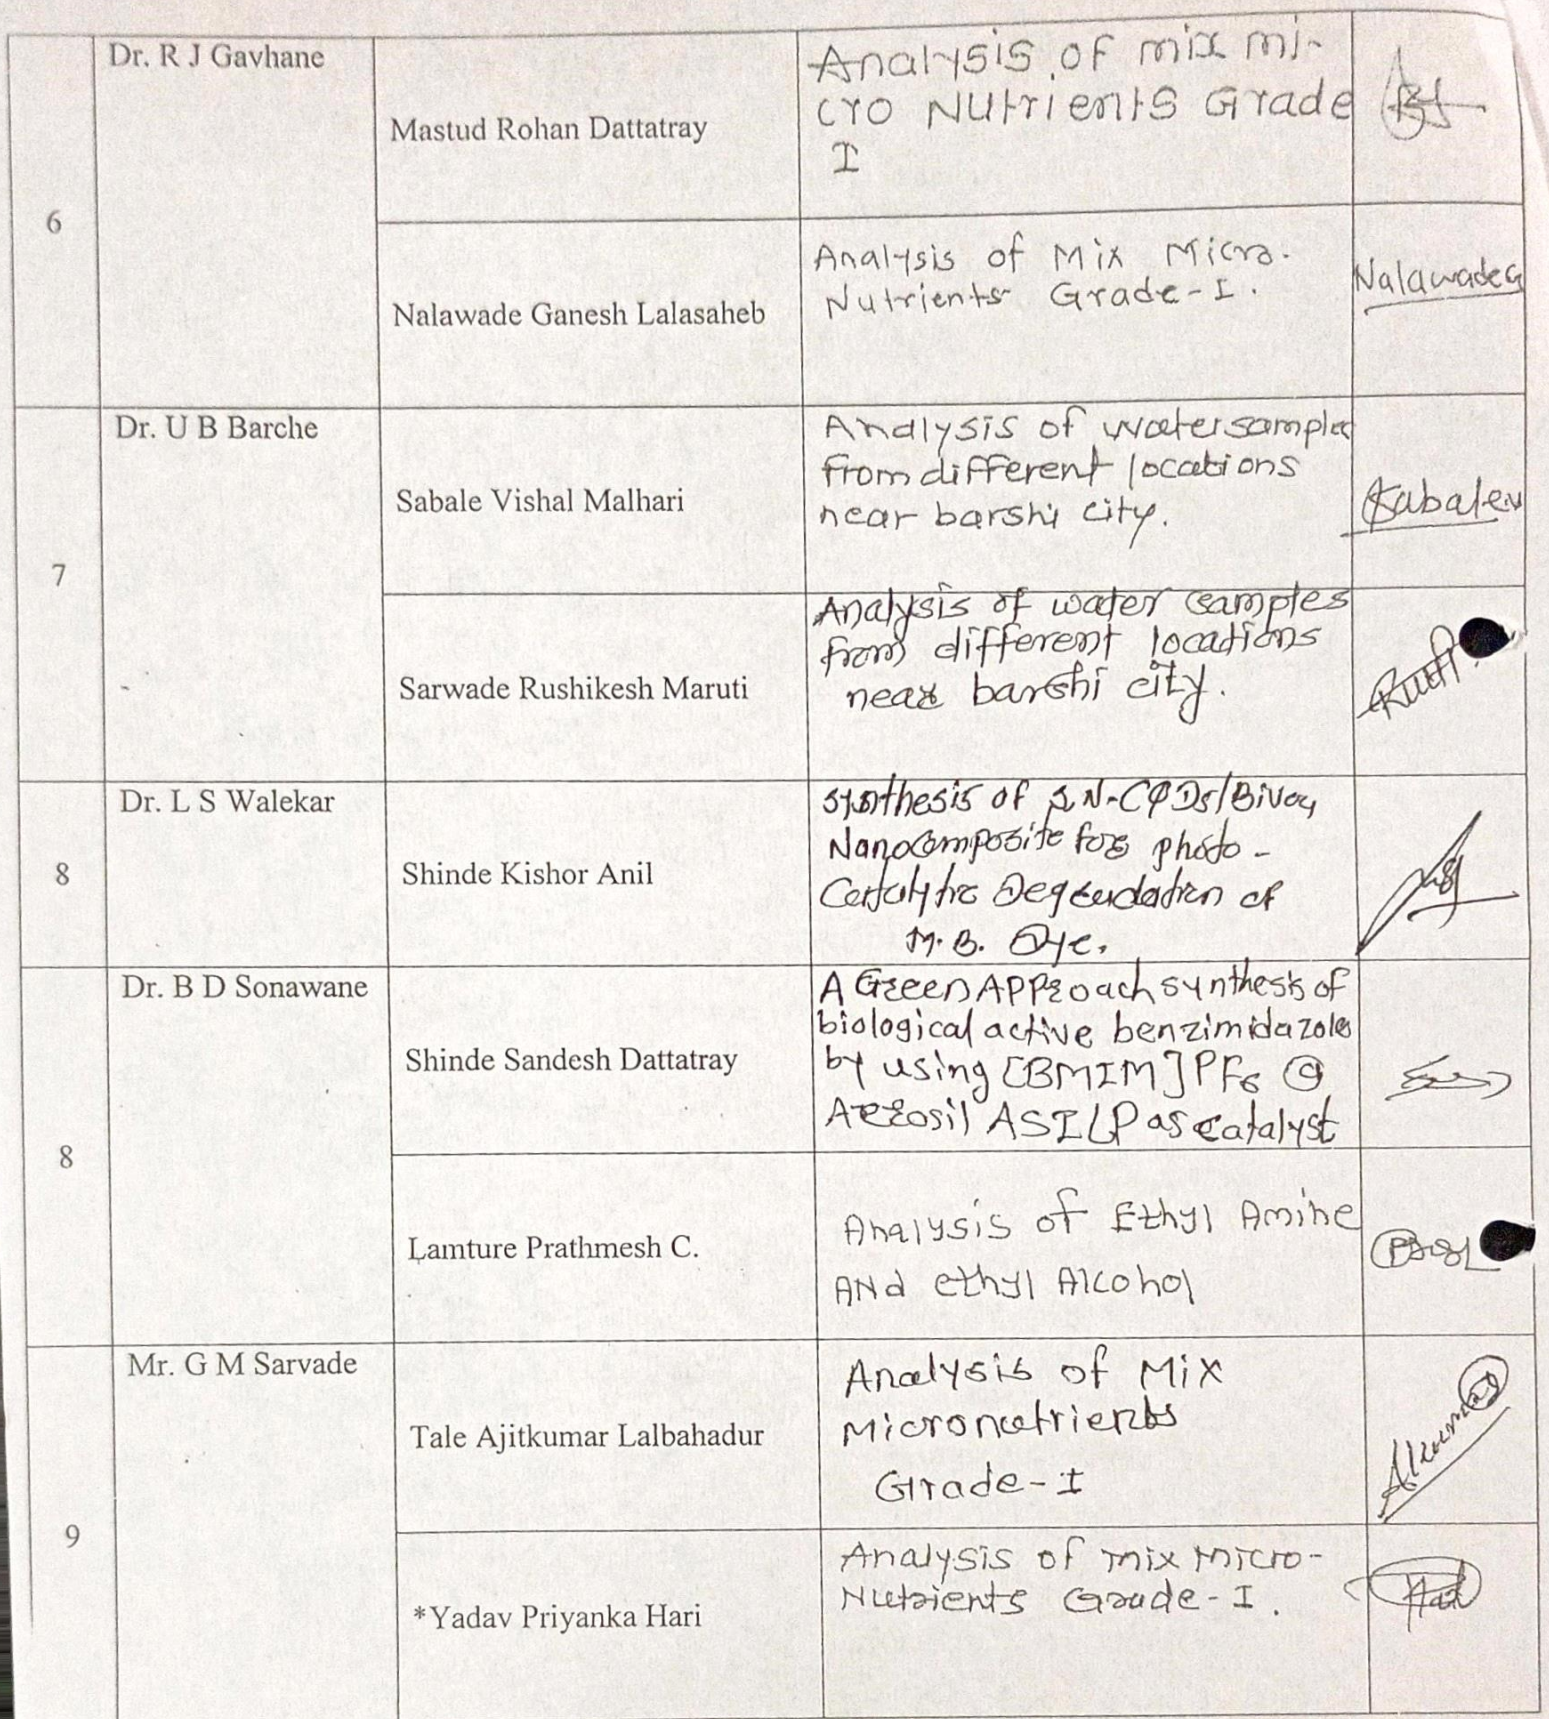 6
Dr. R J Gavhane
Mastud Rohan Dattatray
Analysis of mix mi-
cro Nutrients Grade
I
Nalawade Ganesh Lalasaheb
Analysis of Mix Micro.
Nutrients Grade-I.
NalawadeG
7
Dr. U B Barche
Sabale Vishal Malhari
Analysis of water samples
from different locations
near barshi city.
Sabalev
Sarwade Rushikesh Maruti
Analysis of water samples
from different locations
near barshi city.
8
Dr. L S Walekar
Shinde Kishor Anil
Synthesis of S,N-CQDs/BiVO4
Nanocomposite for photo-
Catalytic Degradation of
M.B. Dye.
8
Dr. B D Sonawane
Shinde Sandesh Dattatray
A Green Approach synthesis of
biological active benzimidazoles
by using [BMIM]PF6 @
Aerosil ASILP as catalyst
Lamture Prathmesh C.
Analysis of Ethyl Amine
ANd ethyl Alcohol
9
Mr. G M Sarvade
Tale Ajitkumar Lalbahadur
Analysis of Mix
Micronutrients
Grade-I
*Yadav Priyanka Hari
Analysis of mix micro-
Nutrients Grade-I.